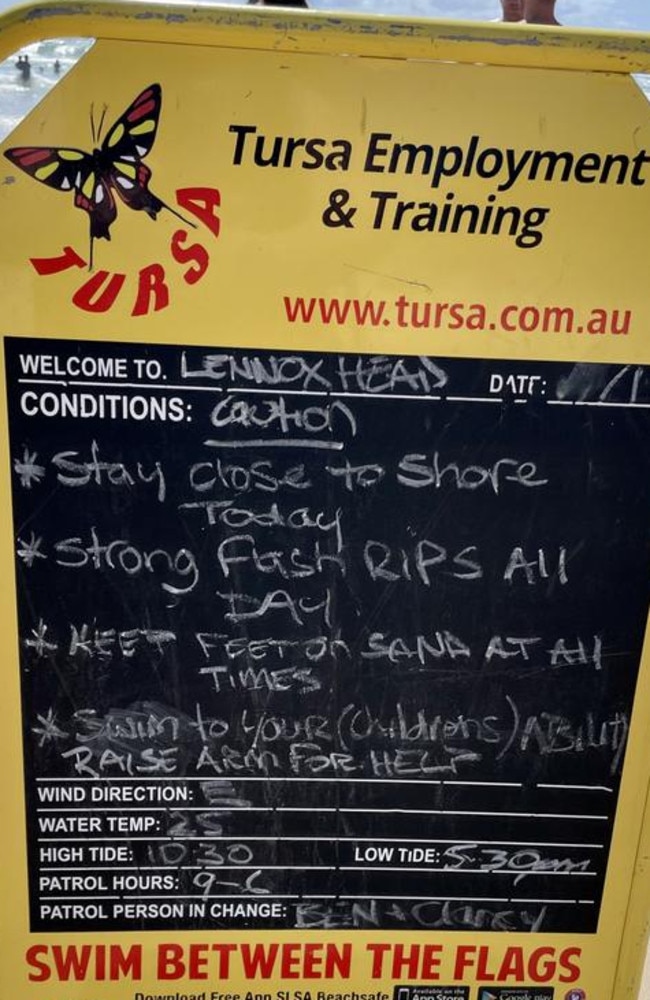 Tursa Employment
& Training
TURSA
www.tursa.com.au
WELCOME TO. LENNOX HEAD DATE: /1
CONDITIONS: Caution
* Stay close to Shore
Today
* Strong Flash RIPS All
DAY
* KEEP FEET on SAND AT All
TIMES
* Swim to Your (Childrens) ABility
RAISE ARM FOR HELP
WIND DIRECTION: E
WATER TEMP: 25
HIGH TIDE: 10 30 LOW TIDE: 5-30pm
PATROL HOURS: 9-6
PATROL PERSON IN CHANGE: BEN + Clancy
SWIM BETWEEN THE FLAGS
Download Free App SLSA Beachsafe Available on the App Store Google play